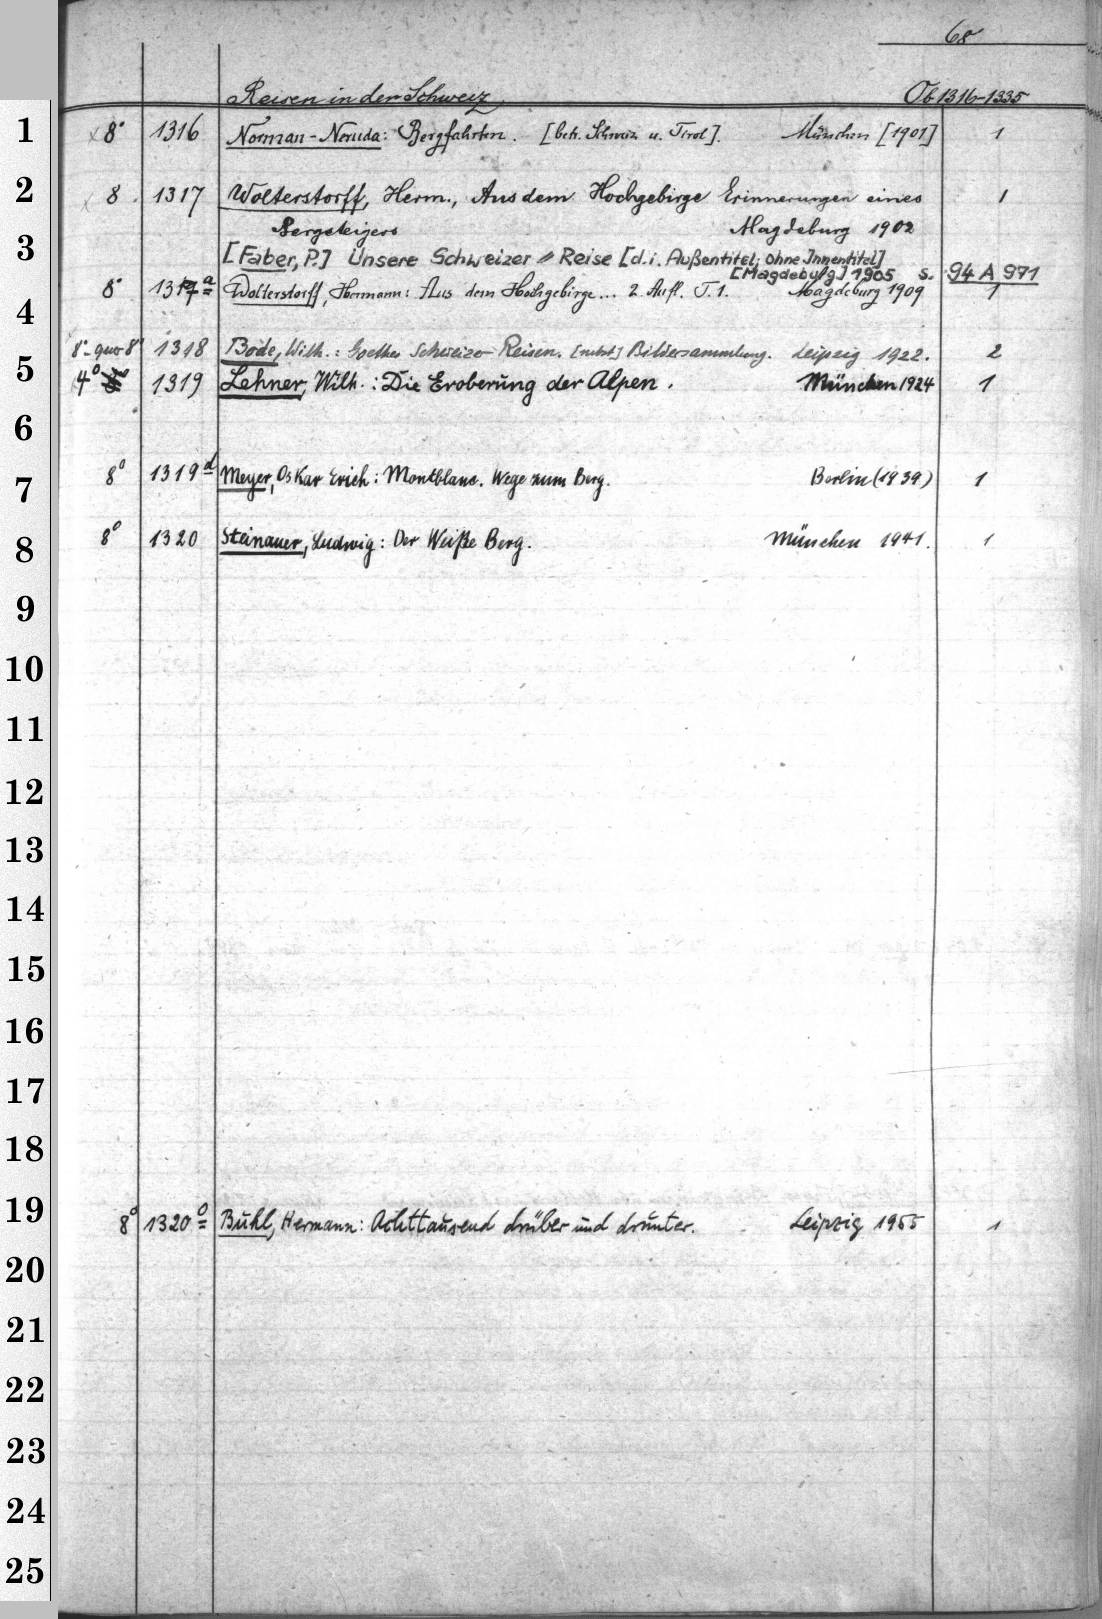 68
Reisen in der Schweiz Ob 1316-1335
1 8° 1316 Norman-Neruda: Bergfahrten. [betr. Schweiz u. Tirol]. München [1901] 1
2 8. 1317 Wolterstorff, Herm., Aus dem Hochgebirge Erinnerungen eines 1
Bergsteigers Magdeburg 1902
3 [Faber, P.] Unsere Schweizer Reise [d.i. Außentitel; ohne Innentitel]
[Magdeburg] 1905 s. 94 A 971
8° 1317a Wolterstorff, Hermann: Aus dem Hochgebirge... 2. Aufl. T. 1. Magdeburg 1909 1
4
8°-quer 8° 1318 Bode, Wilh.: Goethes Schweizer Reisen. [nebst] Bildersammlung. Leipzig 1922. 2
5 4° 1319 Lehner, Wilh.: Die Eroberung der Alpen. München 1924 1
6
7 8° 1319d Meyer, Oskar Erich: Montblanc. Wege zum Berg. Berlin (1939) 1
8 8° 1320 Steinauer, Ludwig: Der Weiße Berg. München 1941. 1
9
10
11
12
13
14
15
16
17
18
19 8° 1320° Buhl, Hermann: Achttausend drüber und drunter. Leipzig 1955 1
20
21
22
23
24
25